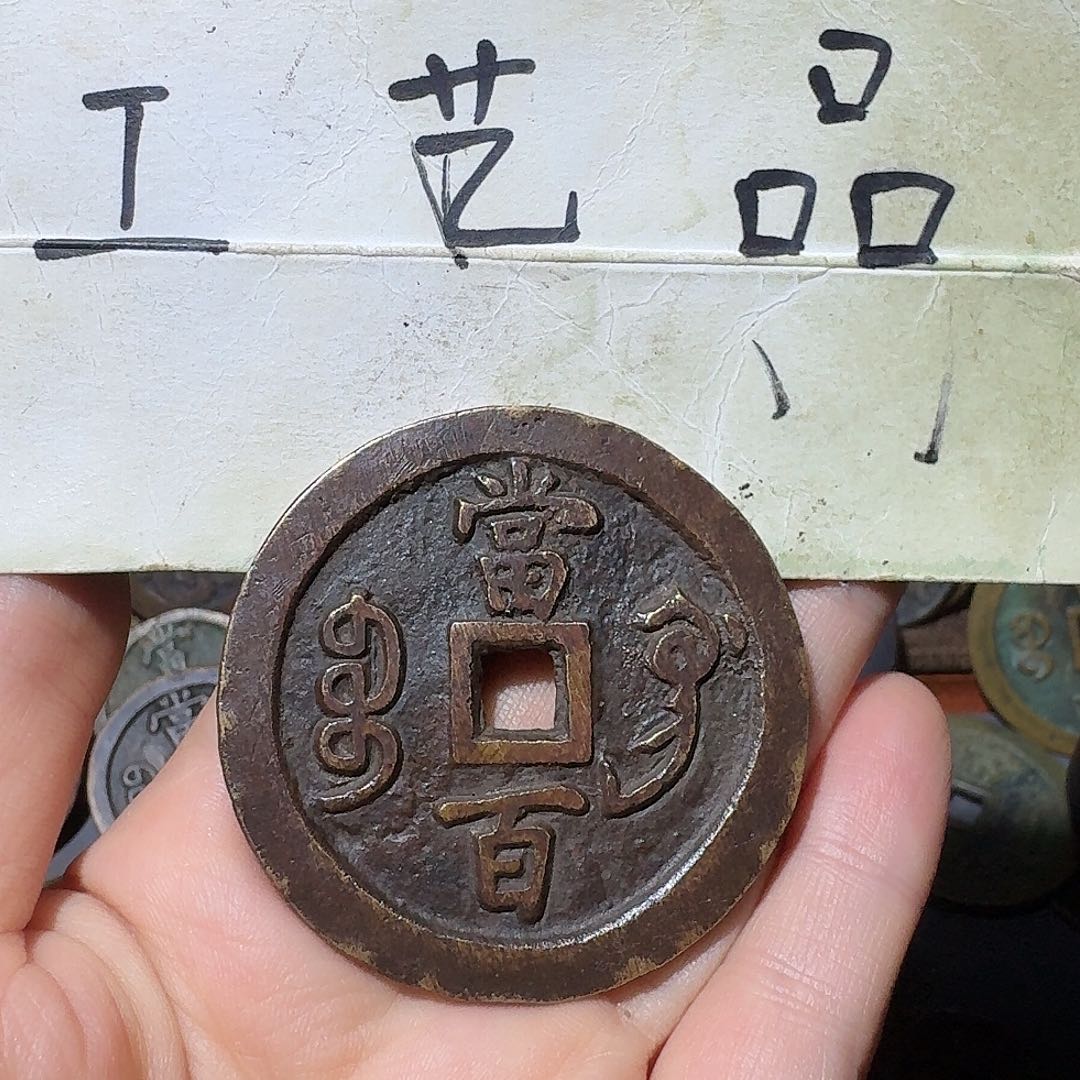 工艺品
當
百